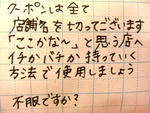 クーポンは全て
店舗名を切ってございます
「ここかな〜」と思う店へ
イチかバチか持っていく
方法で使用しましょう
不服ですか?